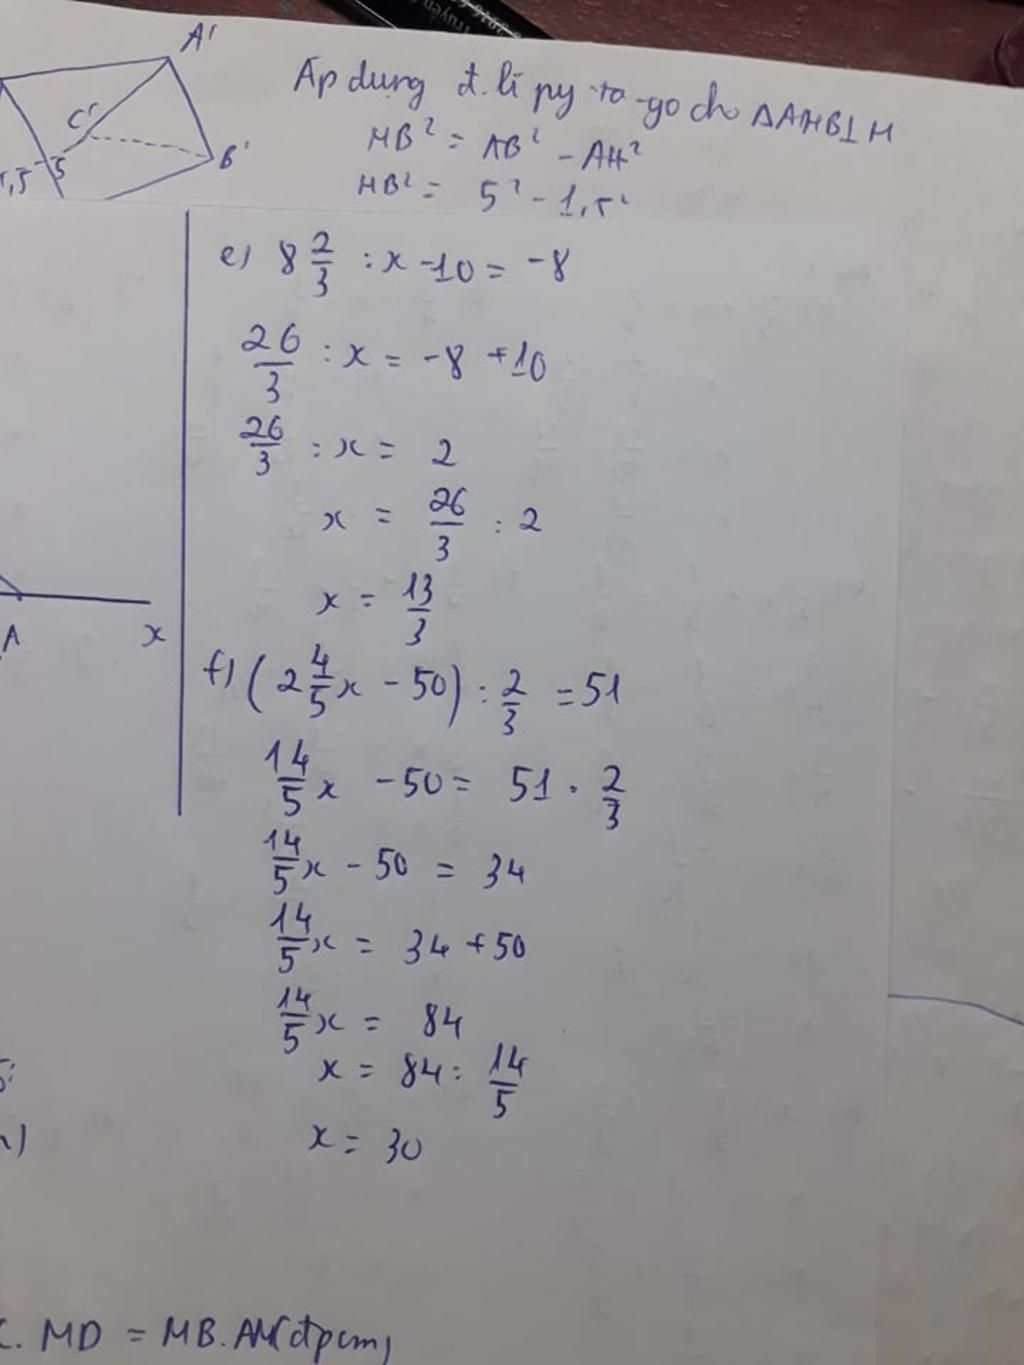 A'
Áp dụng đ.lí py-ta-go cho ΔAHB⊥H
C'
HB² = AB² - AH²
B'
5
HB² = 5² - 1,5²
e) 8 2/3 : x - 10 = -8
26/3 : x = -8 + 10
26/3 : x = 2
x = 26/3 : 2
x = 13/3
A
x
f) (2 4/5 x - 50) : 2/3 = 51
14/5 x - 50 = 51 . 2/3
14/5 x - 50 = 34
14/5 x = 34 + 50
14/5 x = 84
x = 84 : 14/5
x = 30
. MD = MB.AM(đpcm)